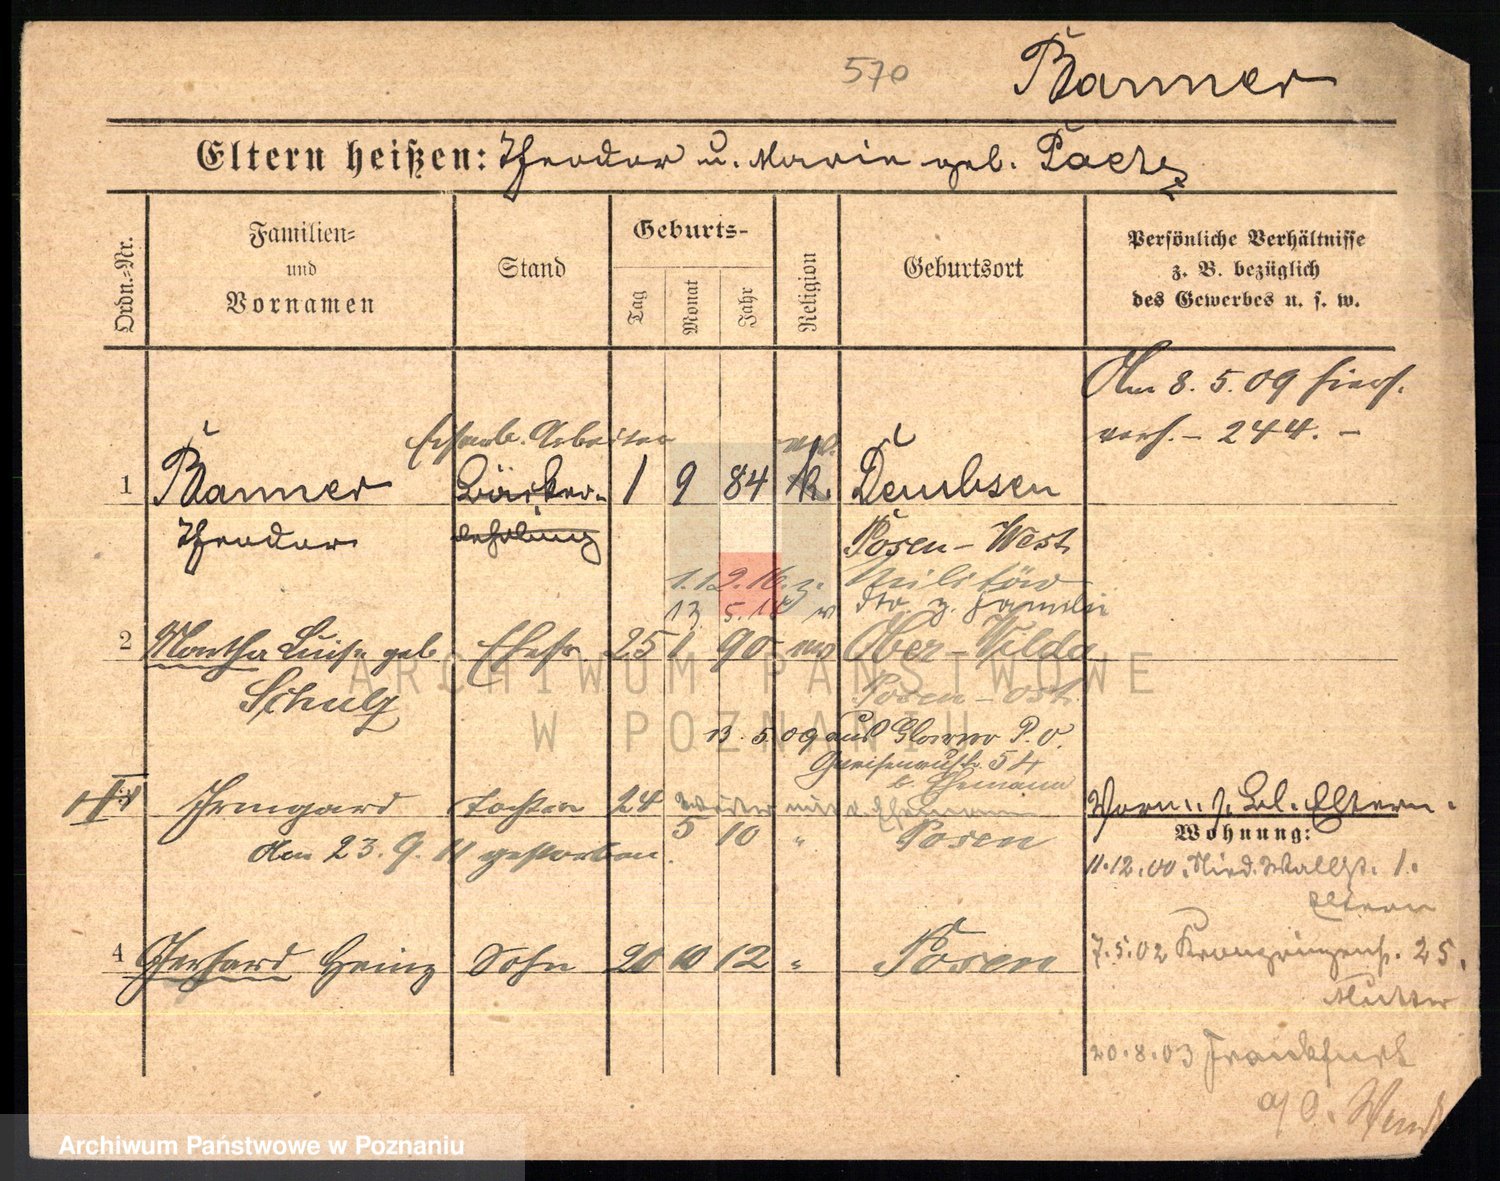 570
Banner
Eltern heißen: Theodor u. Marie geb.
Ordn.-Nr.
Familien- und Vornamen
Stand
Geburts-
Tag
Monat
Jahr
Religion
Geburtsort
Persönliche Verhältnisse
z. B. bezüglich
des Gewerbes u. s. w.
Am 8. 5. 09 hiers.
verh. – 244. –
Arbeiter
1 Banner Bäcker- 1 9 84 k. Dembsen
Theodor lehrling Posen – West
1.12.16. z. Militär
13. 5. 18 v z. Familie
2 Martha Luise geb. Ehefr. 25 1 90 Ober-Wilda
Schulz Posen – Ost
13. 5. 09 aus Glowno P. O.
Gneisenaustr. 54
z. Ehemann
Irmgard Tochter 24 5 10 " Posen
Am 23. 9. 11 gestorben.
Eltern.
Wohnung:
11.12.00. Wallstr. 1.
Eltern
4 Gerhard Heinz Sohn 20 10 12 " Posen
7.5.02 Kronprinzenstr. 25.
Mutter
20.8.03 Frankfurt
a/O.
ARCHIWUM PAŃSTWOWE
W POZNANIU
Archiwum Państwowe w Poznaniu